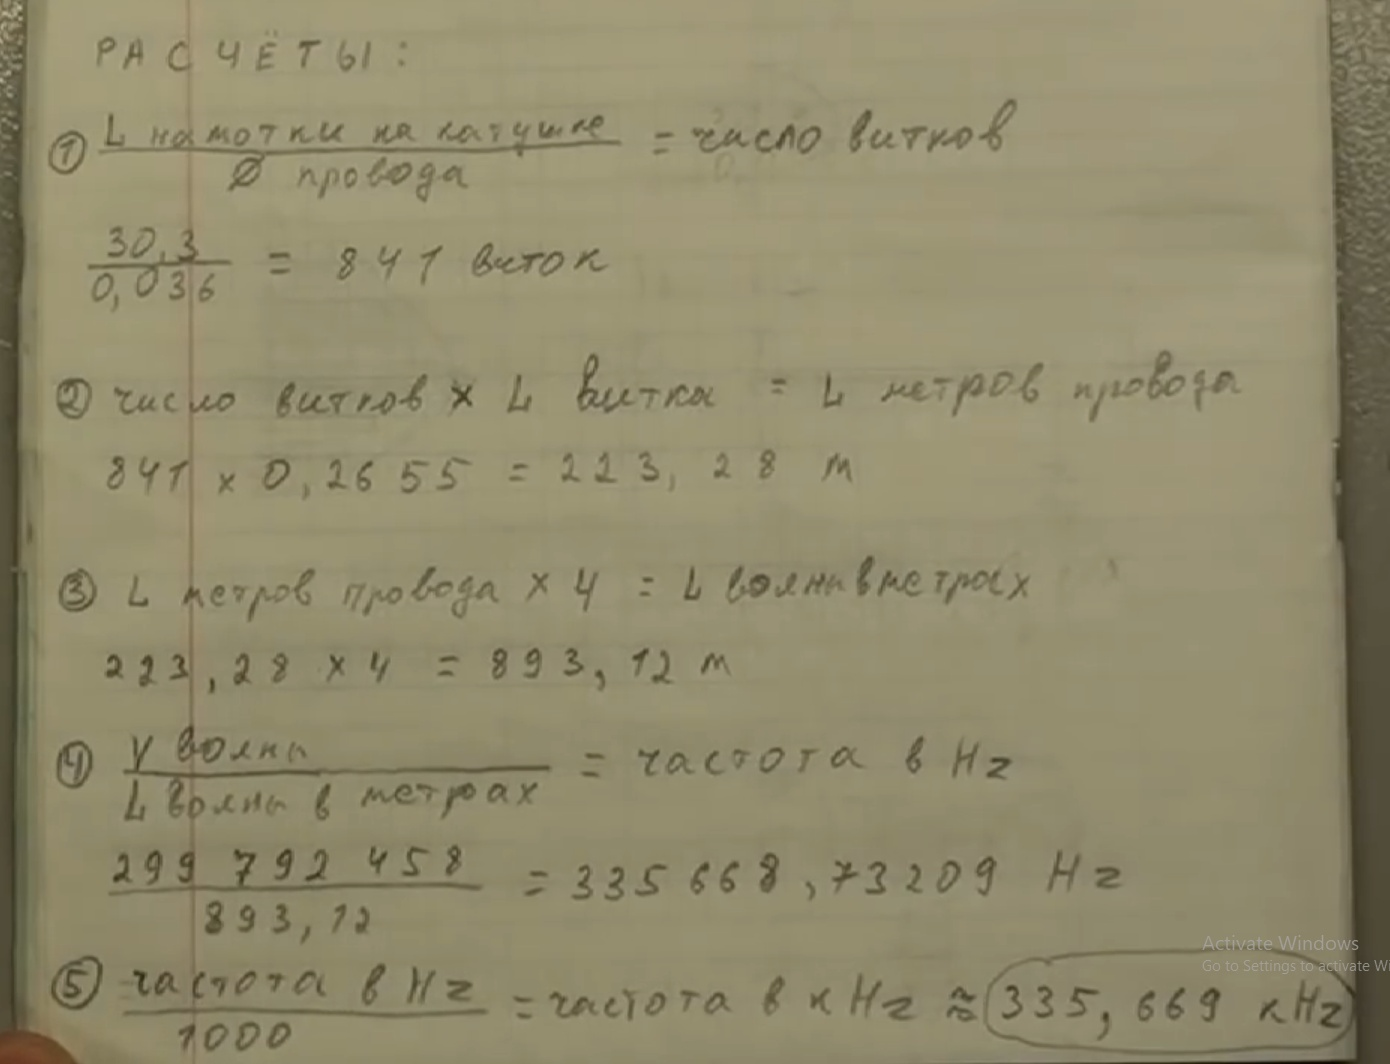 РАСЧЁТЫ:
① L намотки на катушке / Ø провода = число витков
30,3 / 0,036 = 841 виток
② число витков × L витка = L метров провода
841 × 0,2655 = 223,28 м
③ L метров провода × 4 = L волны в метрах
223,28 × 4 = 893,12 м
④ V волны / L волны в метрах = частота в Hz
299 792 458 / 893,12 = 335 668,73209 Hz
⑤ частота в Hz / 1000 = частота в кHz ≈ 335,669 кHz
Activate Windows
Go to Settings to activate Wi